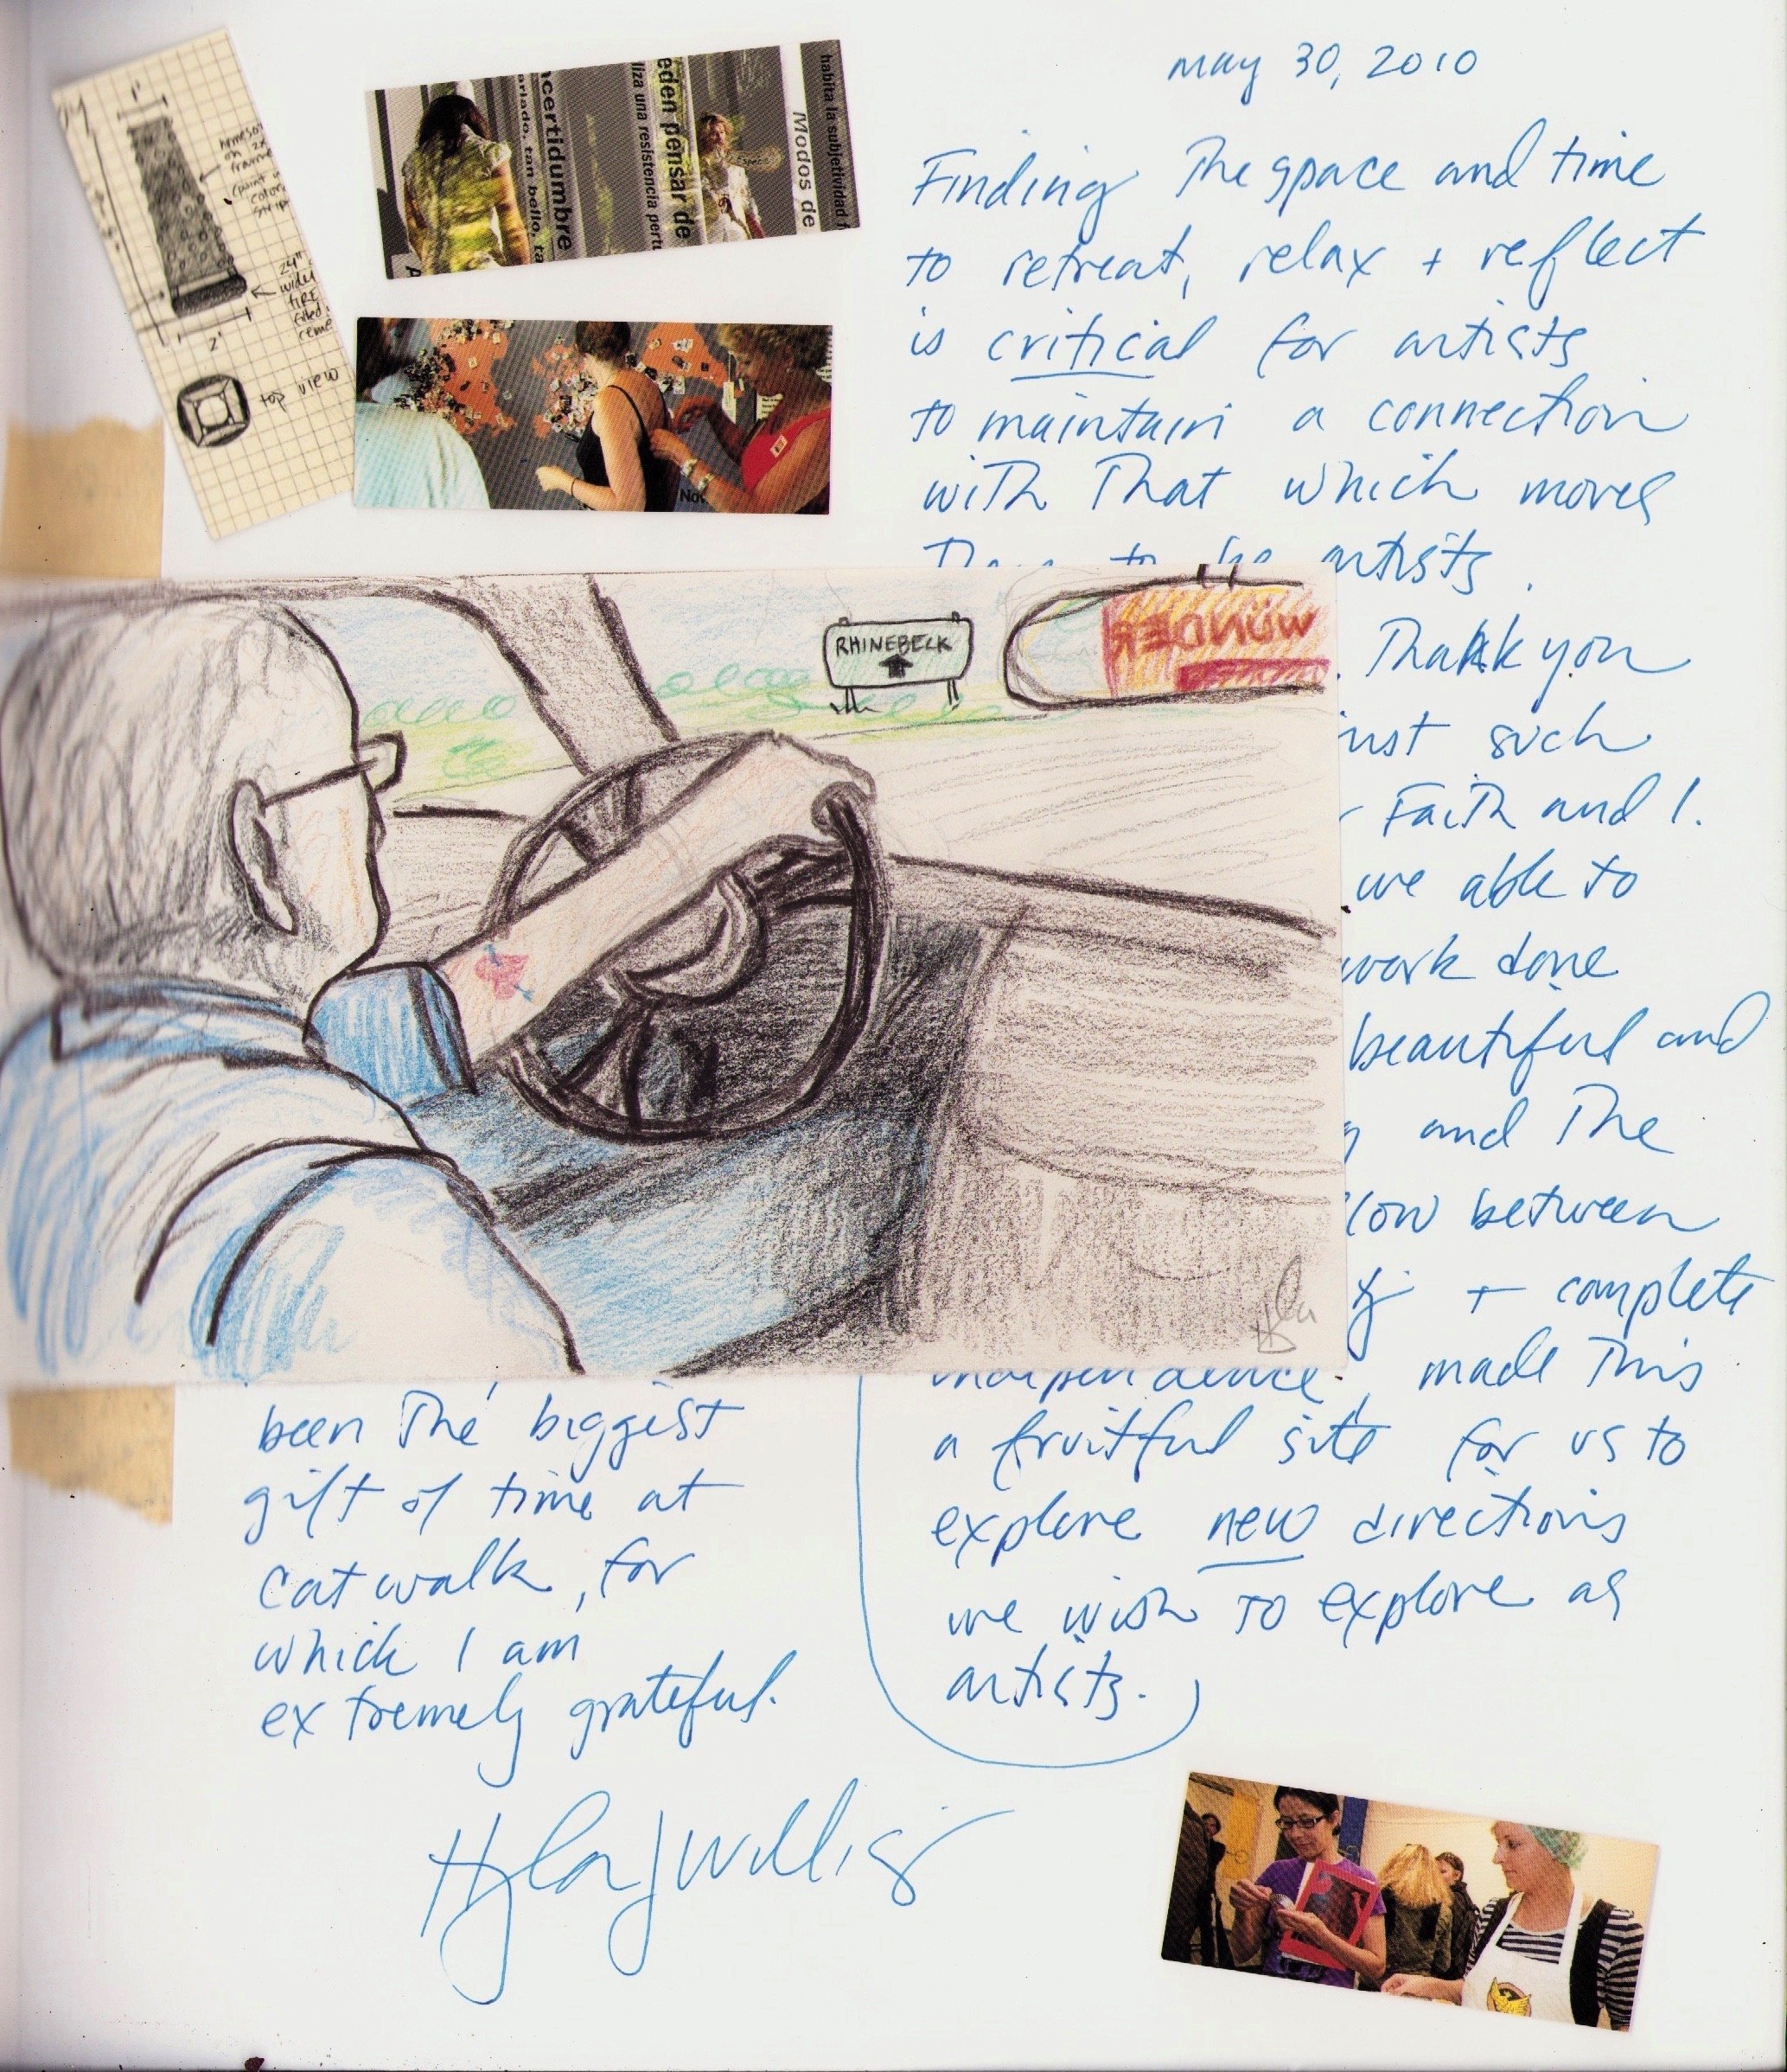 may 30, 2010
Finding The space and time
to retreat, relax + reflect
is critical for artists
to maintain a connection
with That which moves
artists.
Thank you
such
Faith and I.
we able to
work done
beautiful and
and The
between
+ complete
made This
a fruitful site for us to
explore new directions
we wish to explore as
artists.
been The biggest
gift of time at
catwalk, for
which I am
extremely grateful.
RHINEBECK
WUNDER
top view
2'
24"
wide
ncertidumbre
ariado, tan bello, ta
liza una resistencia
eden pensar de
Modos de
habita la subjetividad